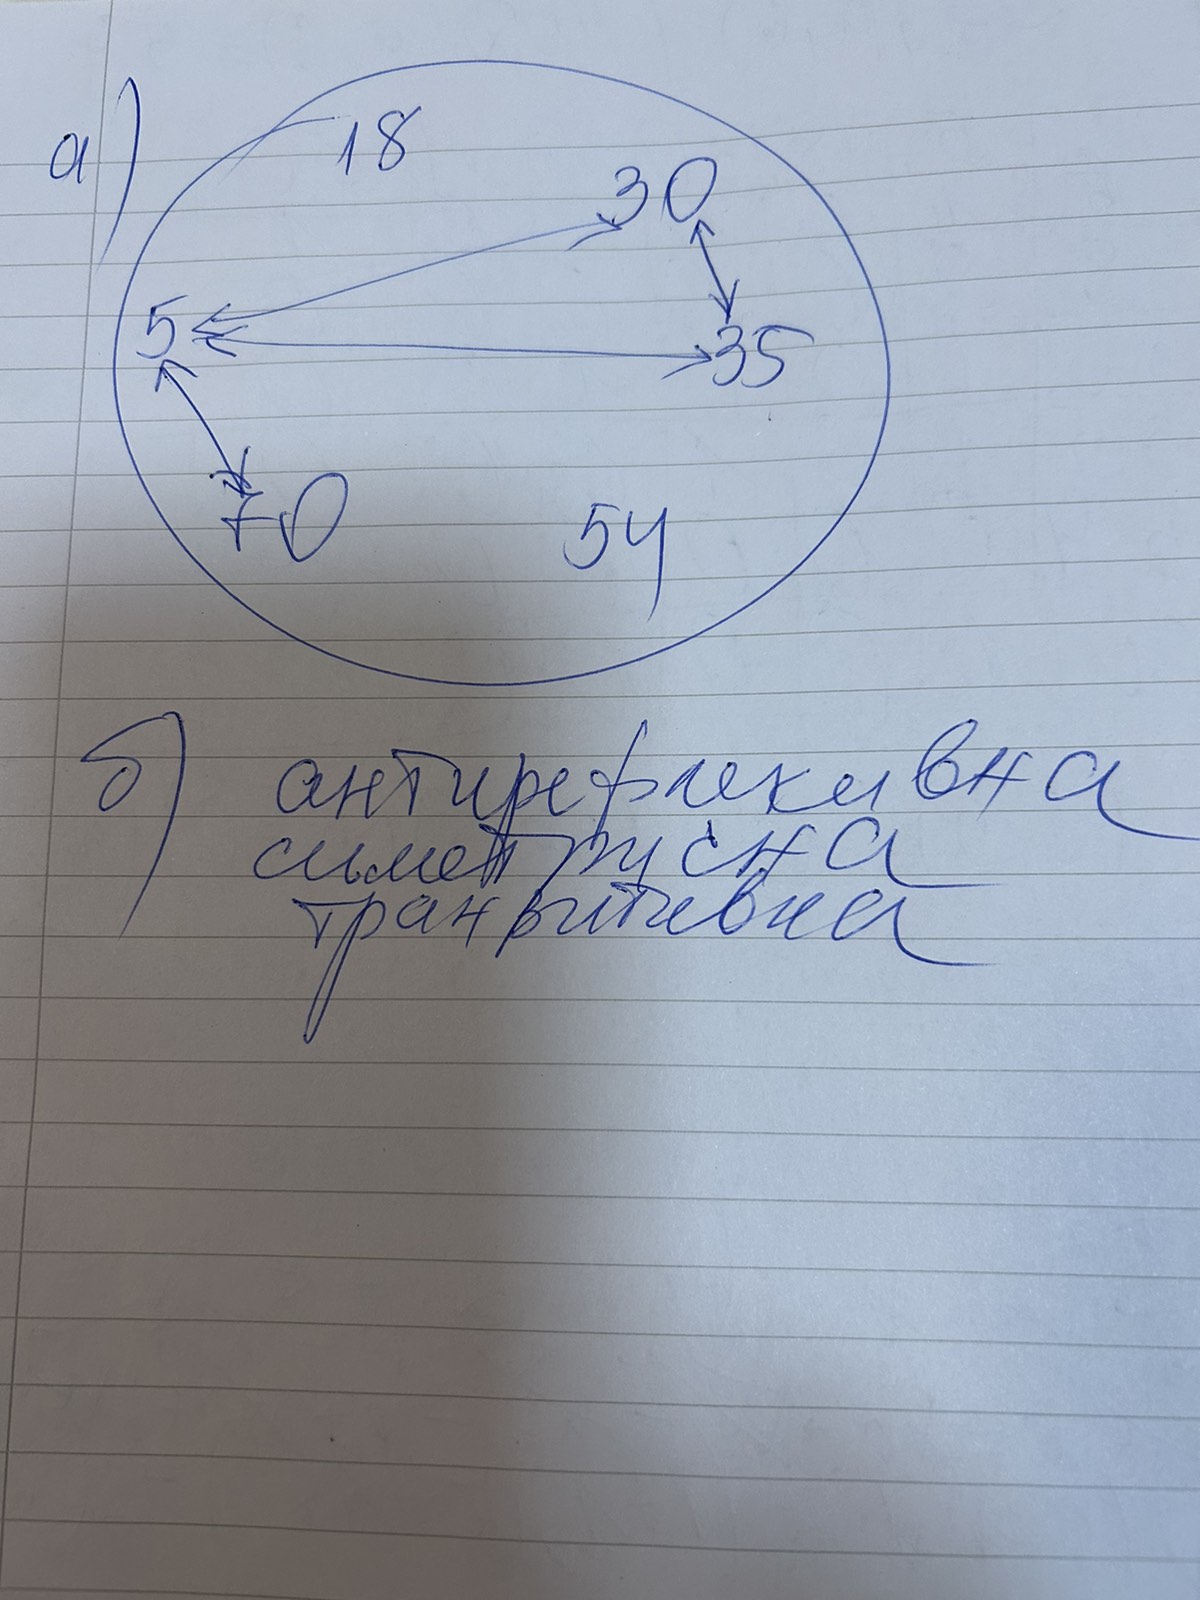 а)
18
30
5
35
70
54
б) антирефлексивна
симетрична
транзитивна